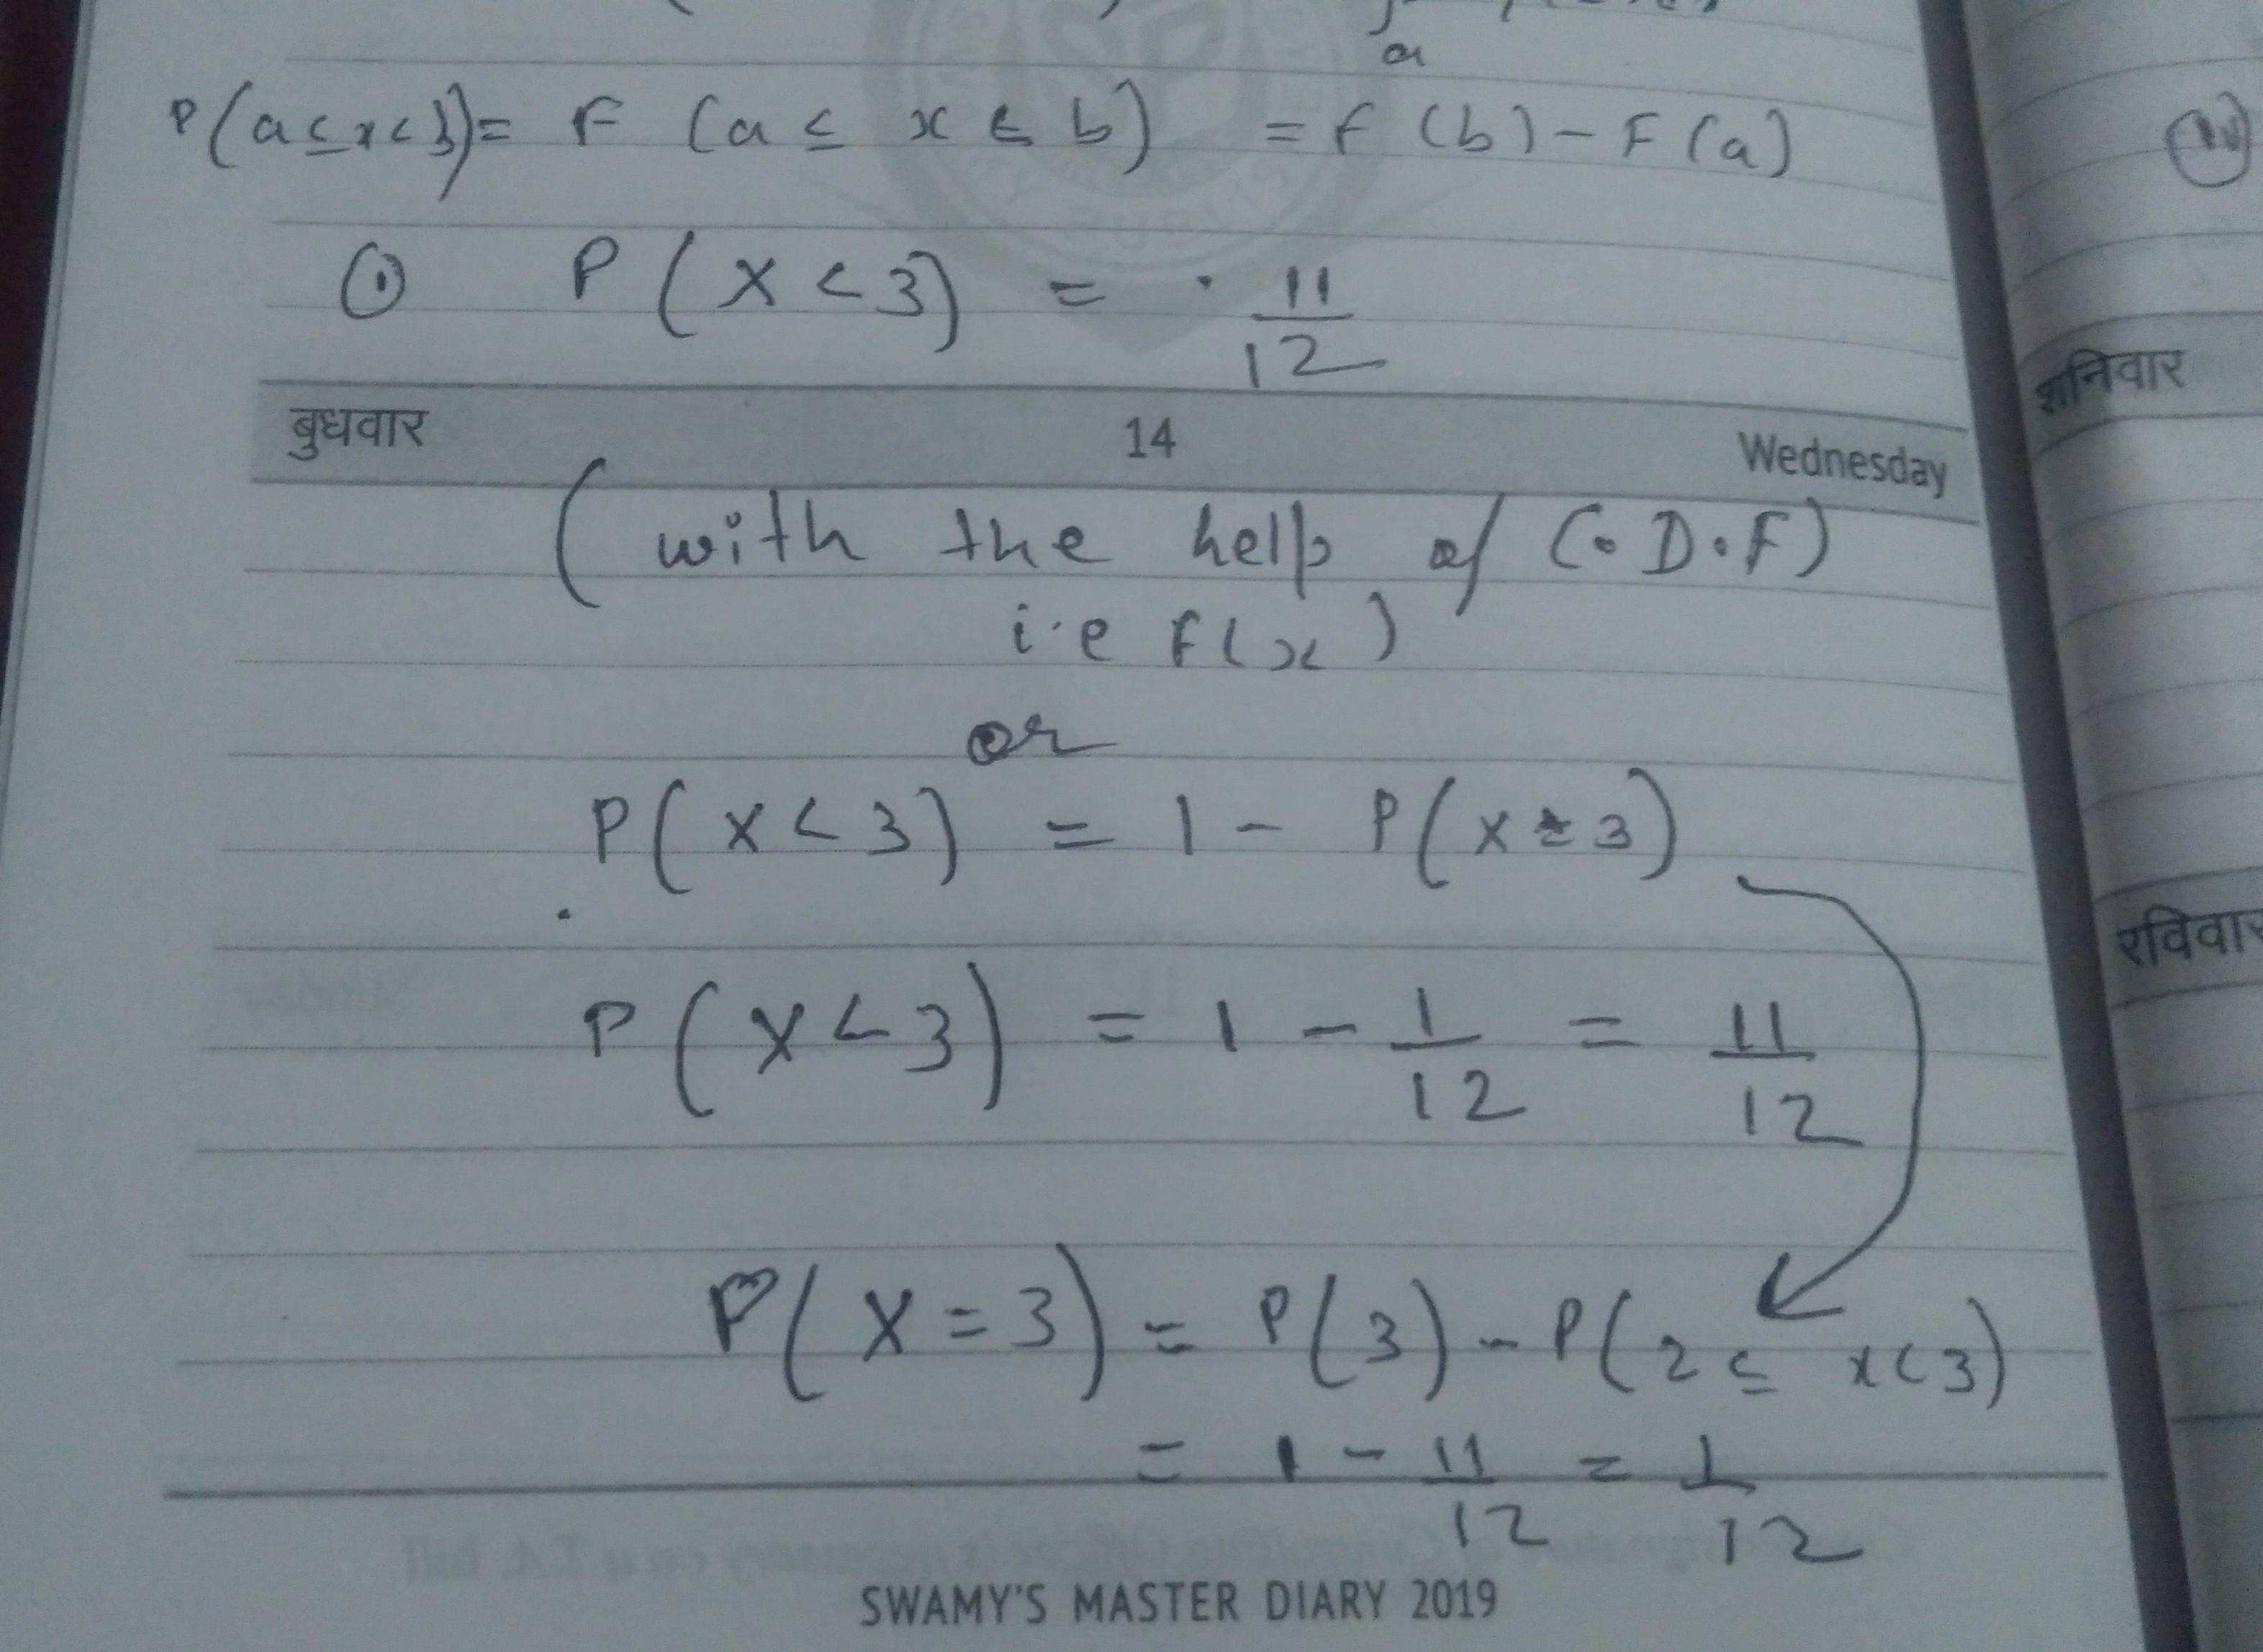 a
P(a≤x<b)= F (a ≤ x ≤ b) = F(b) - F(a)
① P(X<3) = 11/12
बुधवार 14 Wednesday
(with the help of C.D.F)
i.e F(x)
or
P(X<3) = 1 - P(X≥3)
P(X<3) = 1 - 1/12 = 11/12
P(X=3) = P(3) - P(2≤ x<3)
= 1 - 11/12 = 1/12
SWAMY'S MASTER DIARY 2019
शनिवार